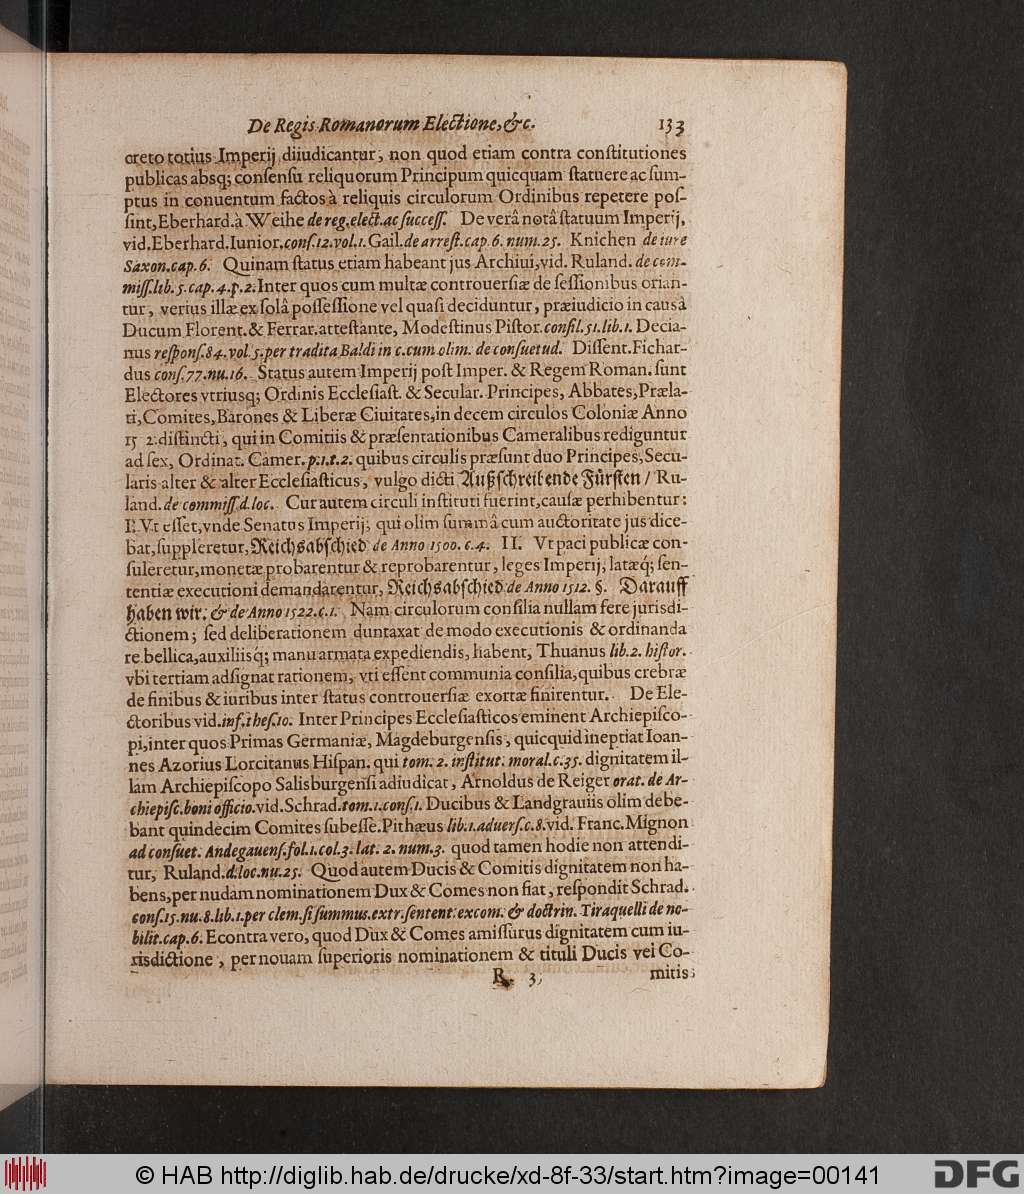 De Regis Romanorum Electione, &c. 133
creto totius Imperij diiudicantur, non quod etiam contra conſtitutiones
publicas absq; conſenſu reliquorum Principum quicquam ſtatuere ac ſum-
ptus in conuentum factos à reliquis circulorum Ordinibus repetere poſ-
ſint, Eberhard. à Weihe de reg. elect. ac ſucceſſ. De verâ notâ ſtatuum Imperij,
vid. Eberhard. Iunior. conſ. 12. vol. 1. Gail. de arreſt. cap. 6. num. 25. Knichen de iure
Saxon. cap. 6. Quinam ſtatus etiam habeant jus Archiui, vid. Ruland. de com-
miſſ. lib. 5. cap. 4. p. 2. Inter quos cum multæ controuerſiæ de ſeſſionibus orian-
tur, verius illæ ex ſolâ poſſeſſione vel quaſi deciduntur, præiudicio in causâ
Ducum Florent. & Ferrar. atteſtante, Modeſtinus Piſtor. conſil. 51. lib. 1. Decia-
nus reſponſ. 84. vol. 5. per tradita Baldi in c. cum olim. de conſuetud. Diſſent. Fichar-
dus conſ. 77. nu. 16. Status autem Imperij poſt Imper. & Regem Roman. ſunt
Electores vtriusq; Ordinis Eccleſiaſt. & Secular. Principes, Abbates, Præla-
ti, Comites, Barones & Liberæ Ciuitates, in decem circulos Coloniæ Anno
15 2. diſtincti, qui in Comitiis & præſentationibus Cameralibus rediguntur
ad ſex, Ordinat. Camer. p. 1. t. 2. quibus circulis præſunt duo Principes, Secu-
laris alter & alter Eccleſiaſticus, vulgo dicti Außſchreibende Fürſten / Ru-
land. de commiſſ. d. loc. Cur autem circuli inſtituti fuerint, cauſæ perhibentur:
I. Vt eſſet, vnde Senatus Imperij, qui olim ſummâ cum auctoritate jus dice-
bat, ſuppleretur, Reichsabſchied de Anno 1500. c. 4. II. Vt paci publicæ con-
ſuleretur, monetæ probarentur & reprobarentur, leges Imperij, latæq; ſen-
tentiæ executioni demandarentur, Reichsabſchied de Anno 1512. §. Darauff
haben wir. & de Anno 1522. c. 1. Nam circulorum conſilia nullam fere jurisdi-
ctionem; ſed deliberationem duntaxat de modo executionis & ordinanda
re bellica, auxiliisq; manu armata expediendis, habent, Thuanus lib. 2. hiſtor.
vbi tertiam adſignat rationem, vti eſſent communia conſilia, quibus crebræ
de finibus & iuribus inter ſtatus controuerſiæ exortæ finirentur. De Ele-
ctoribus vid. inf. theſ. 10. Inter Principes Eccleſiaſticos eminent Archiepiſco-
pi, inter quos Primas Germaniæ, Magdeburgenſis, quicquid ineptiat Ioan-
nes Azorius Lorcitanus Hiſpan. qui tom. 2. inſtitut. moral. c. 35. dignitatem il-
lam Archiepiſcopo Salisburgenſi adiudicat, Arnoldus de Reiger orat. de Ar-
chiepiſc. boni officio. vid. Schrad. tom. 1. conſ. 1. Ducibus & Landgrauiis olim debe-
bant quindecim Comites ſubeſſe. Pithæus lib. 1. aduerſ. c. 8. vid. Franc. Mignon
ad conſuet. Andegauenſ. fol. 1. col. 3. lat. 2. num. 3. quod tamen hodie non attendi-
tur, Ruland. d. loc. nu. 25. Quod autem Ducis & Comitis dignitatem non ha-
bens, per nudam nominationem Dux & Comes non fiat, reſpondit Schrad.
conſ. 15. nu. 8. lib. 1. per clem. ſi ſummus. extr. ſentent. excom. & doctrin. Tiraquelli de no-
bilit. cap. 6. Econtra vero, quod Dux & Comes amiſſurus dignitatem cum iu-
risdictione, per nouam ſuperioris nominationem & tituli Ducis vel Co-
R 3 mitis
© HAB http://diglib.hab.de/drucke/xd-8f-33/start.htm?image=00141 DFG